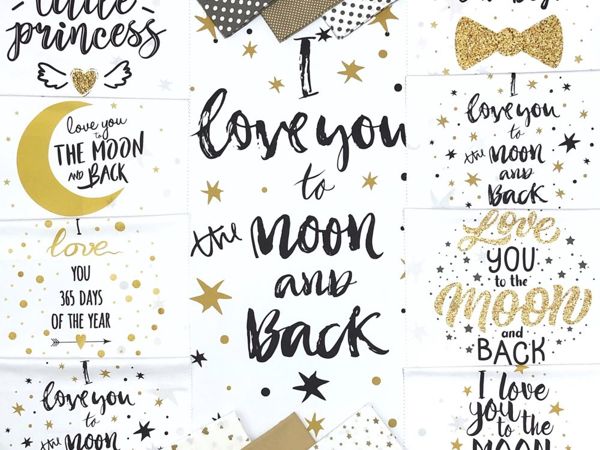 little
princess
love you
to
THE MOON
AND
BACK
I
love
YOU
365 DAYS
OF THE YEAR
I
love you
to
the moon
I
love you
to
the moon
and
Back
boy
I
love you
to
the moon
and
Back
Love
YOU
to the
Moon
and
BACK
I love
you
to the
MOON